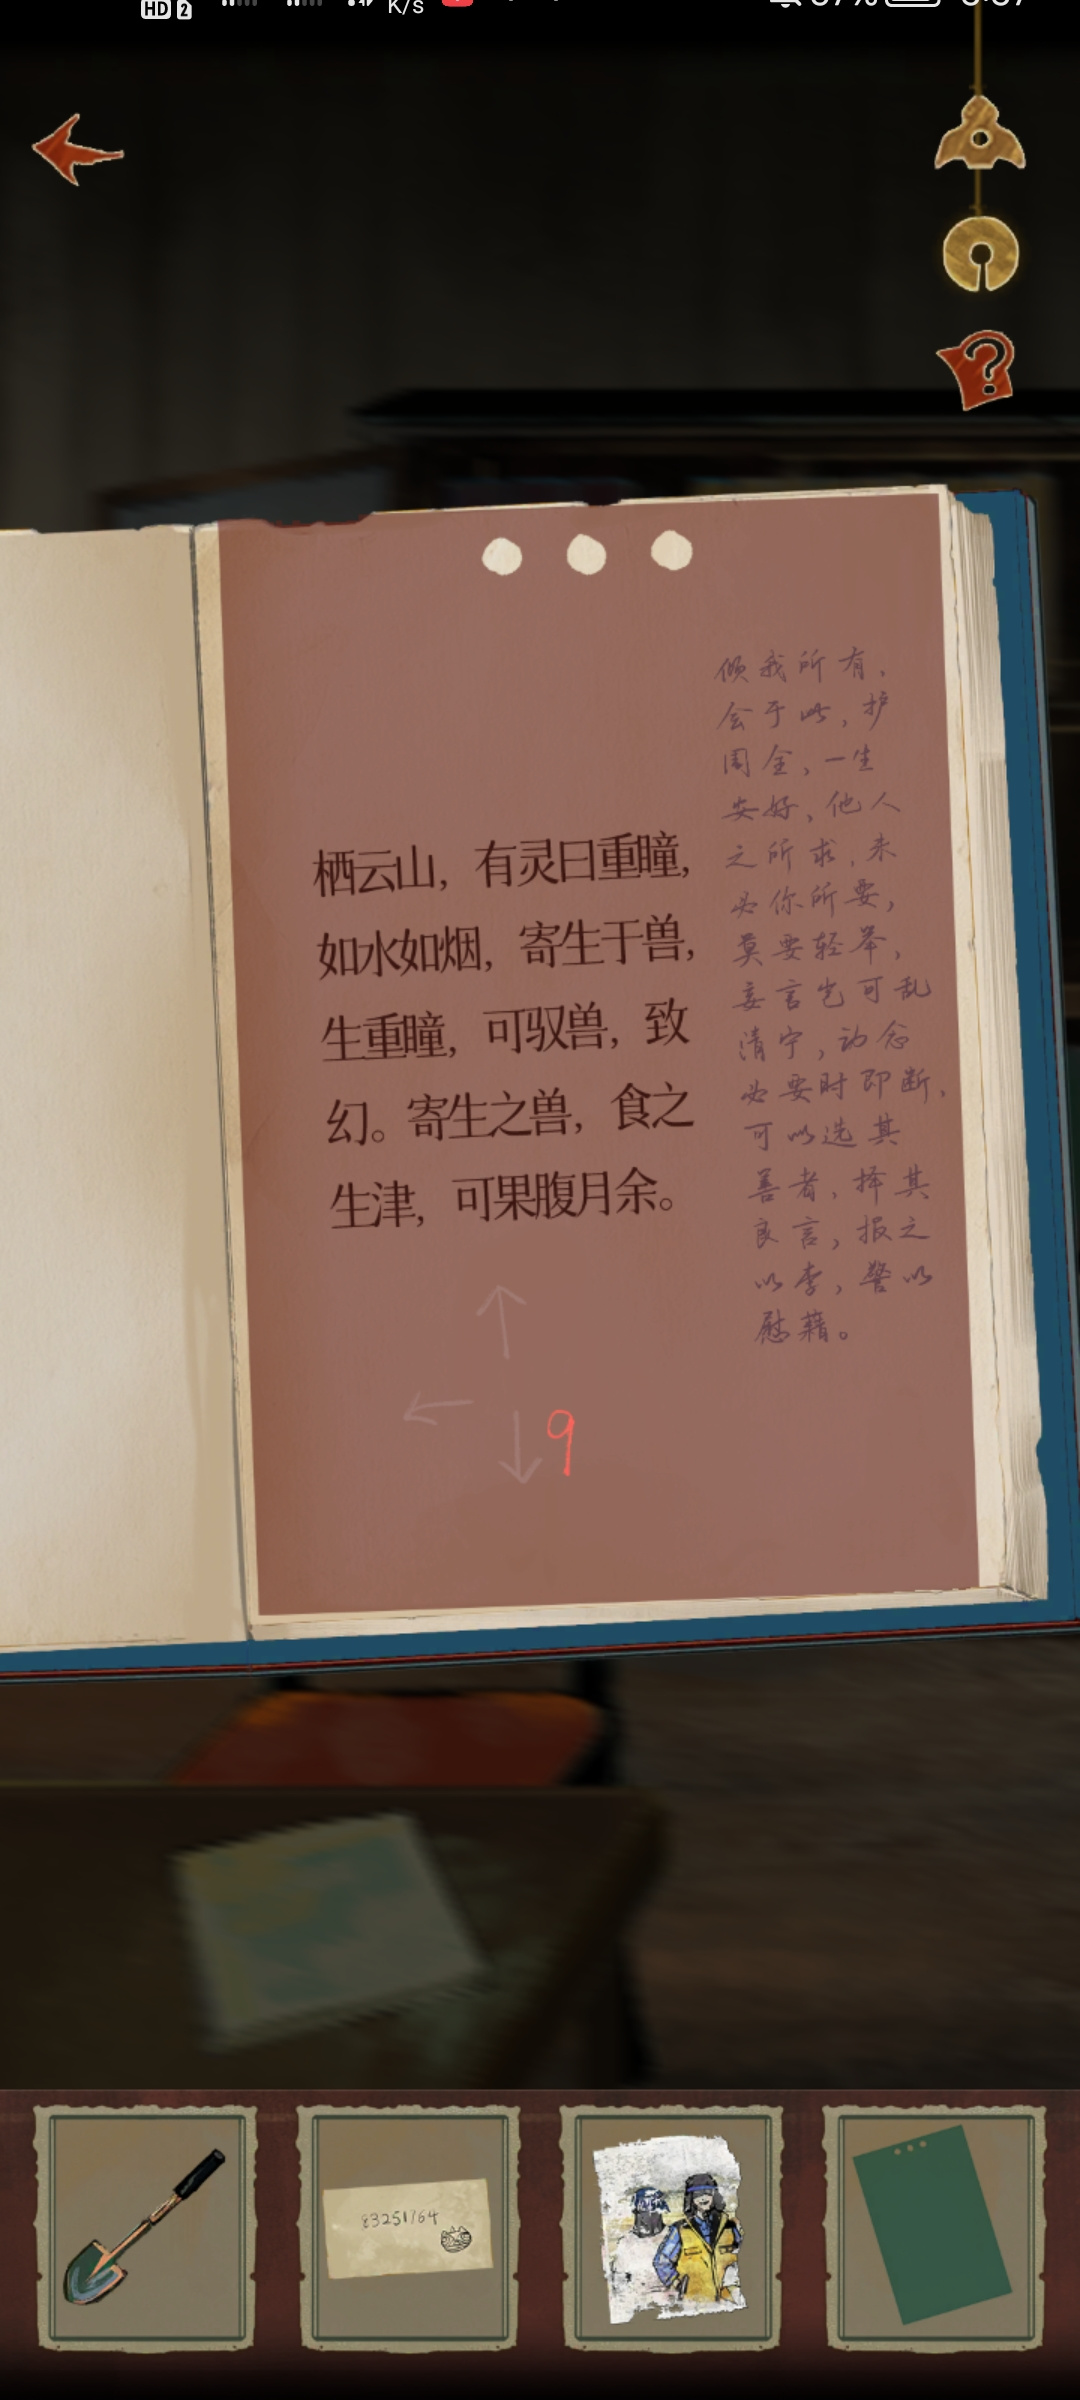 HD 2
K/s
栖云山，有灵曰重瞳，
如水如烟，寄生于兽，
生重瞳，可驭兽，致
幻。寄生之兽，食之
生津，可果腹月余。
倾我所有，
会于此，护
周全，一生
安好，他人
之所求，未
必你所要，
莫要轻举，
妄言岂可乱
清宁，动念
必要时即断，
可以选其
善者，择其
良言，报之
以李，警以
慰藉。
9
83251764